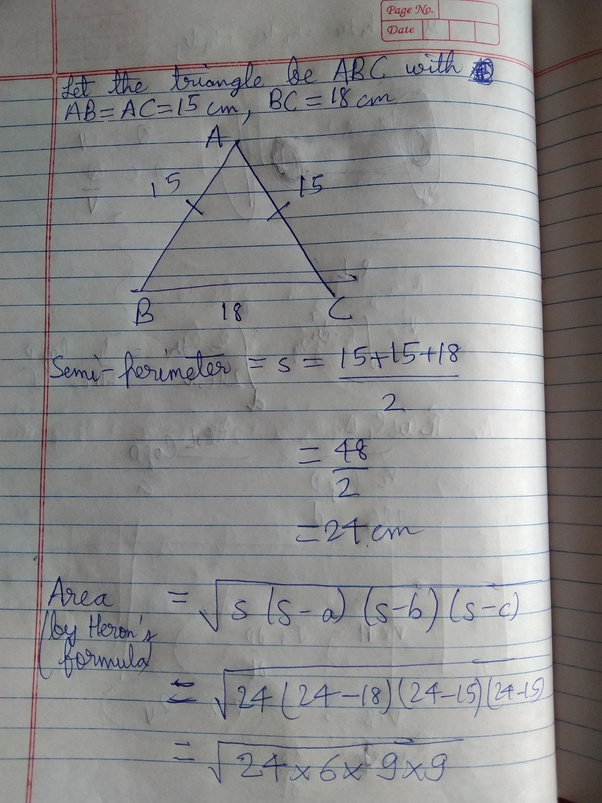 Page No.
Date
Let the triangle be ABC with
AB=AC=15 cm, BC=18 cm
A
15
15
B
18
C
Semi-perimeter = s = 15+15+18
2
= 48
2
= 24 cm
Area = √s (s-a) (s-b) (s-c)
(by Heron's
formula)
= √24 (24-18) (24-15) (24-15)
= √24×6×9×9